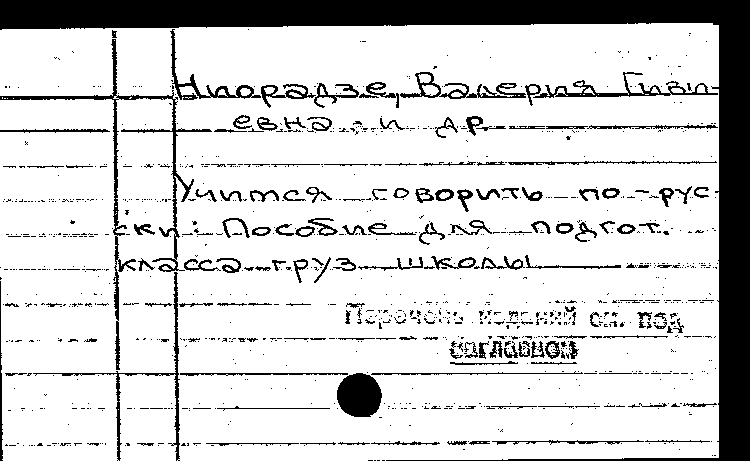 Ниорадзе, Валерия Гиви-
евна и др.
Учимся говорить по-рус-
ски: Пособие для подгот.
класса груз школы
Перечень изданий см. под
заглавием